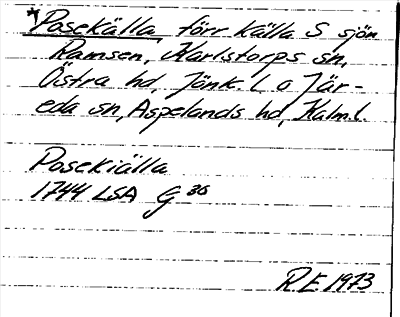 *Posekälla förr källa S sjön
Ramsen, Karlstorps sn,
Östra hd, Jönk. l o Jär-
eda sn, Aspelands hd, Kalm.l.
Posekiälla
1744 LSA G 30
RE 1973